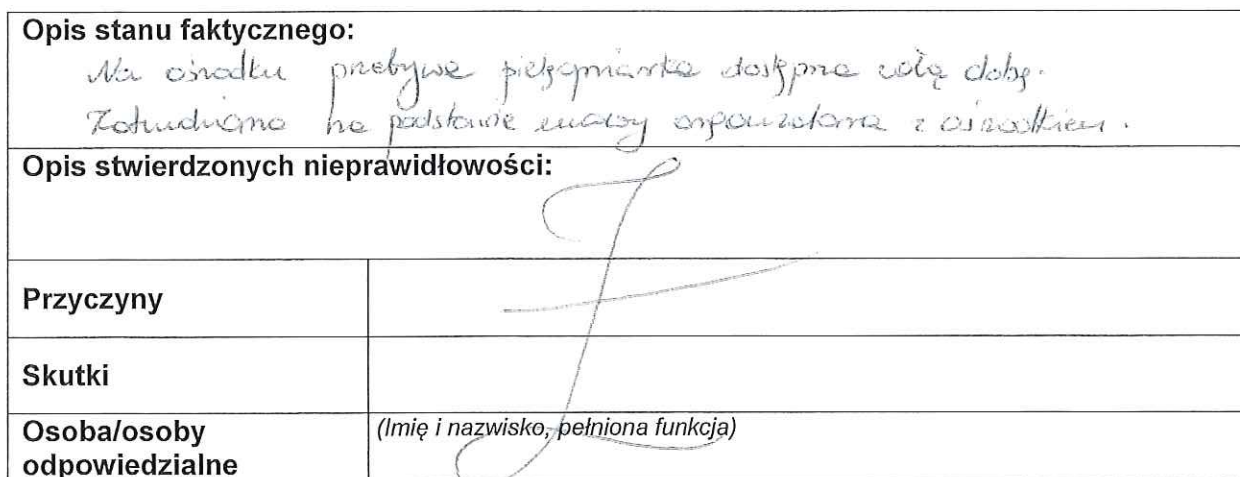 Opis stanu faktycznego:
Na ośrodku przebywa pielęgniarka dostępna całą dobę.
Zatrudniona na podstawie umowy organizatora z ośrodkiem.
Opis stwierdzonych nieprawidłowości:
Przyczyny
Skutki
Osoba/osoby
odpowiedzialne
(Imię i nazwisko, pełniona funkcja)